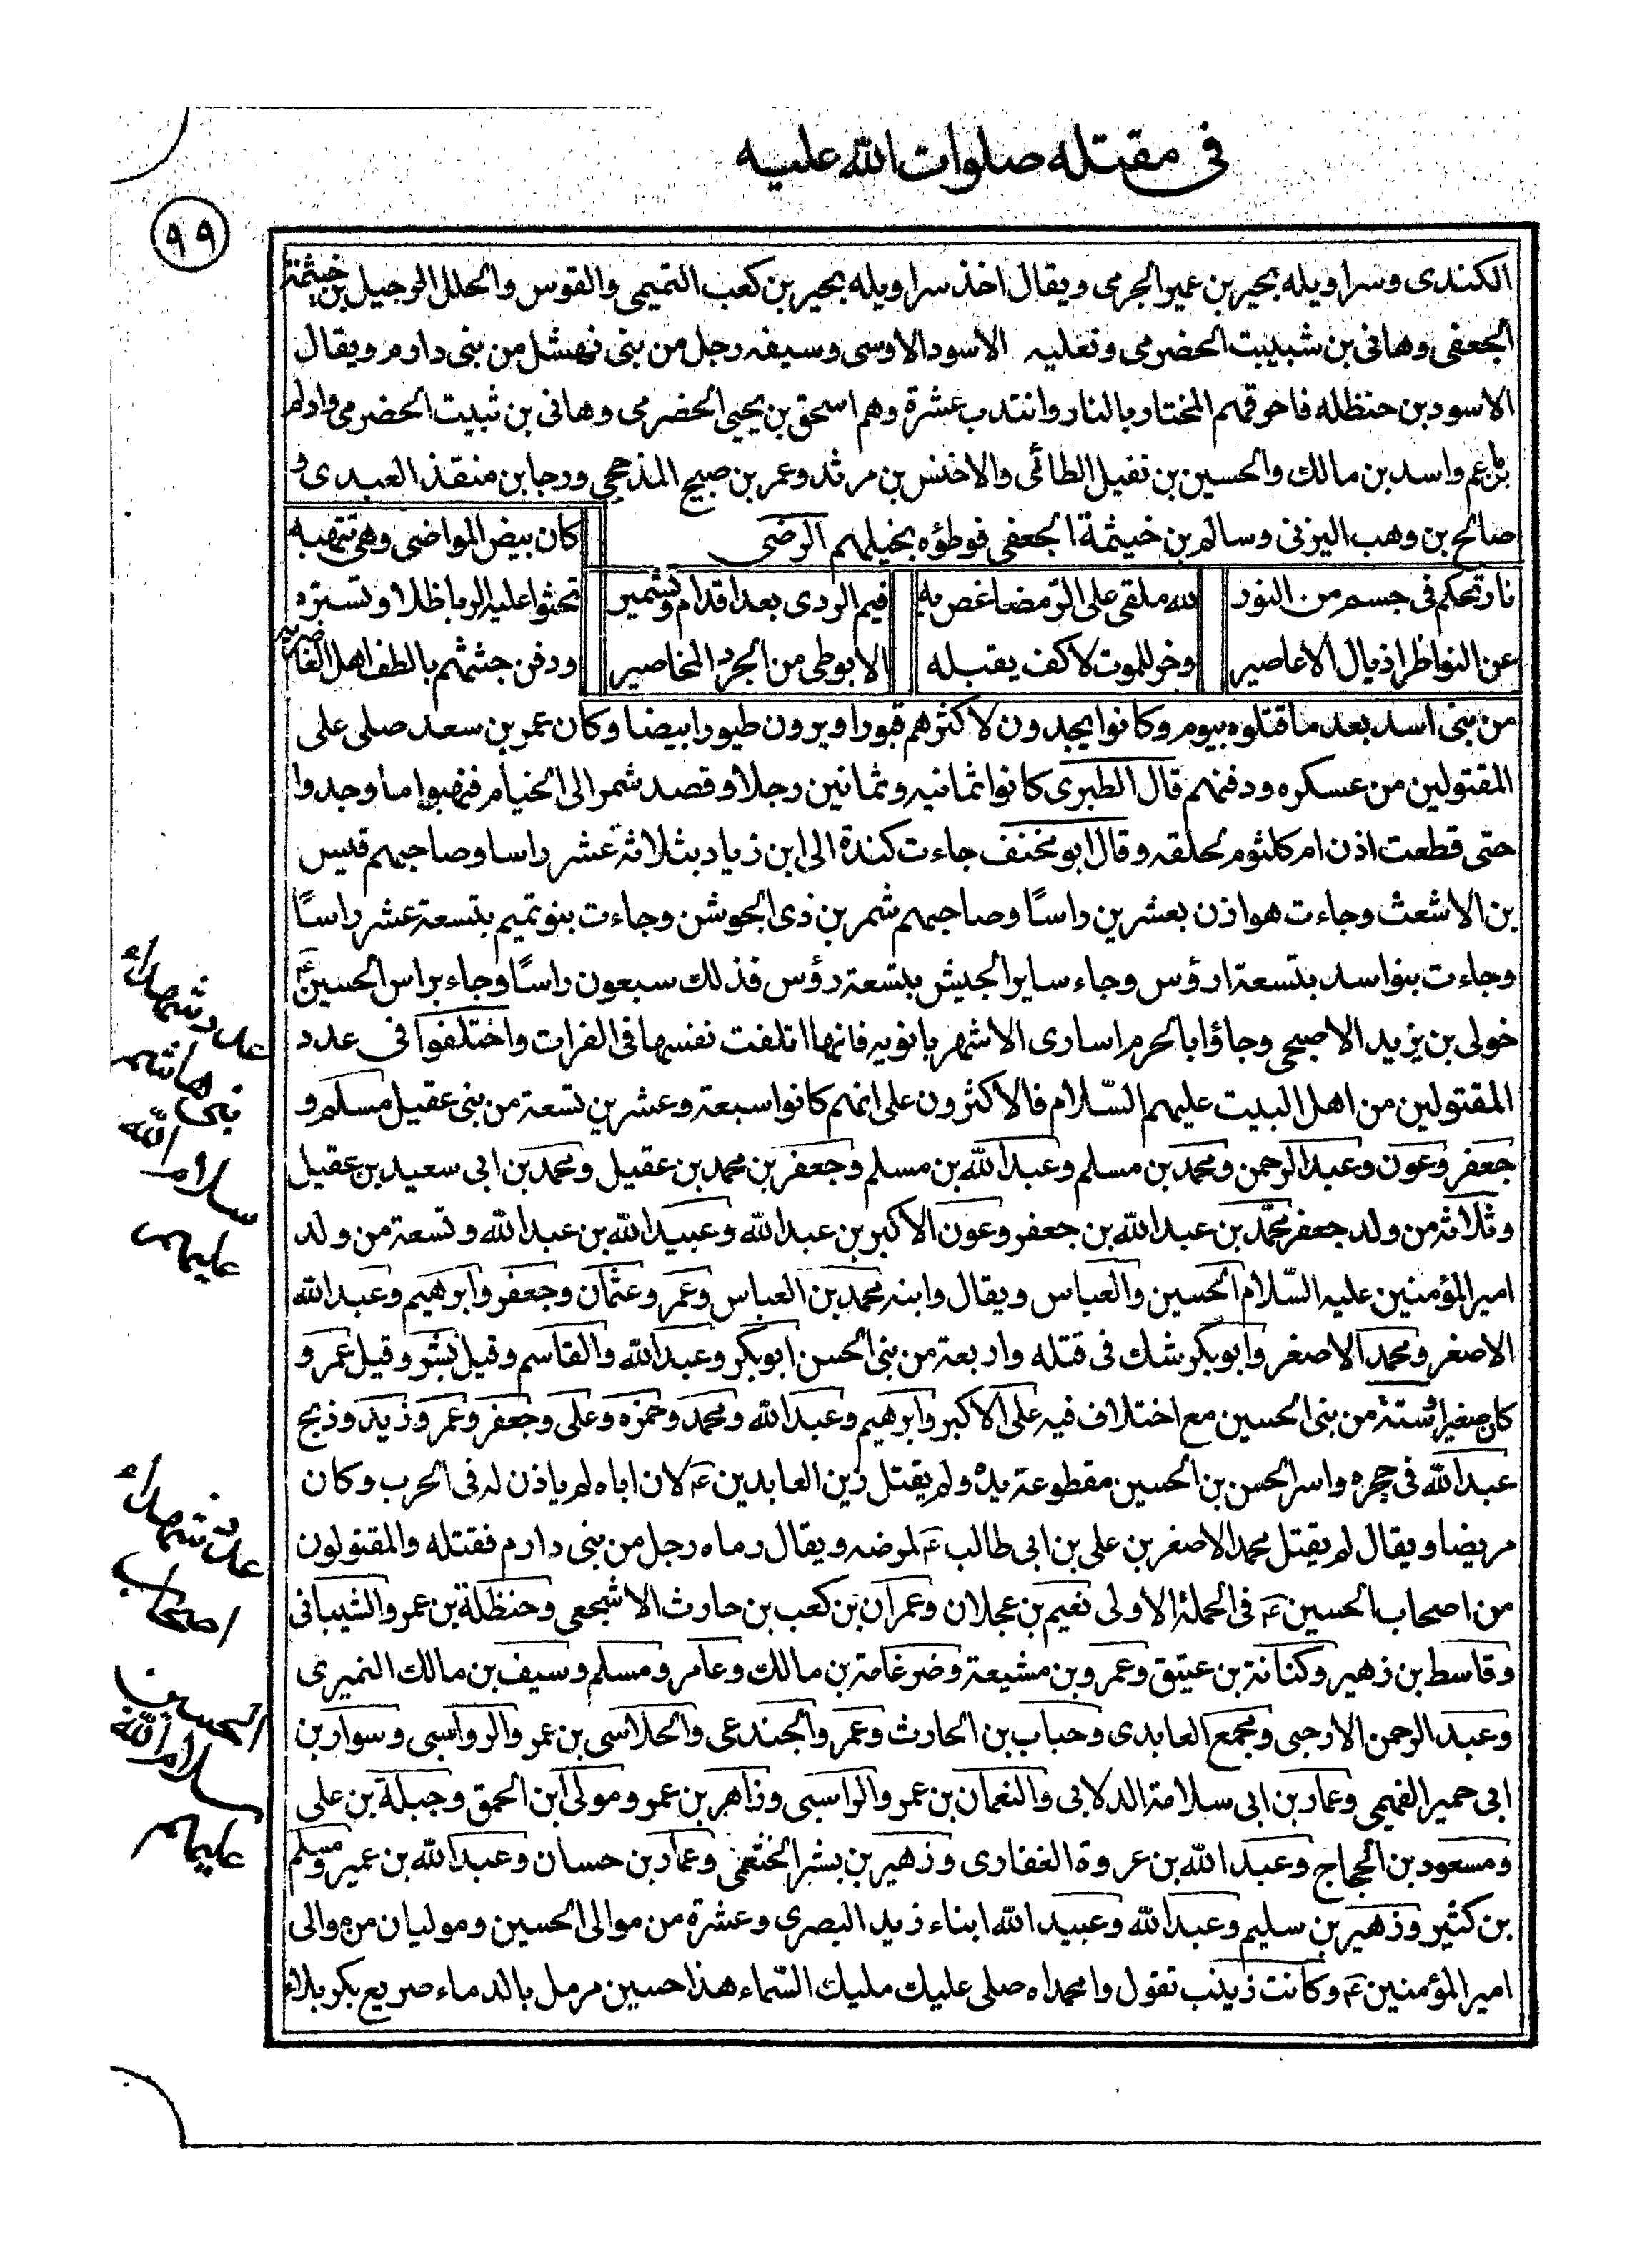 فى مقتله صلوات الله عليه
٩٩
الكندى وسراويله بحير بن عمير الجرمى ويقال اخذ سراويله بحير بن كعب التميمى والقوس والحلل الرحيل بن خيثمة
الجعفى وهانى بن شبيبت الحضرمى ونعليه الاسود الاوسى وسيفه رجل من بنى نهشل من بنى دارم ويقال
الاسود بن حنظله فاحرقهم المختار بالنار وانتدب عشرة وهم اسحق بن يحيى الحضرمى وهانى بن ثبيت الحضرمى وادلم
بن ناعم واسد بن مالك والحسين بن نفيل الطائى والاخنس بن مرثد وعمر بن صبيح المذحجى ورجا بن منقذ العبدى و
صالح بن وهب اليزنى وسالم بن خيثمة الجعفى فوطؤه بخيلهم الرضى
كان بيض المواضى وهى تنهبه
نار تحكم فى جسم من النور
لله ملقى على الرمضا غص به
فم الردى بعد اقدام وتشمير
تحثوا عليه الربا ظلا وتستره
عن النواظر اذيال الاعاصير
وخر للموت لا كف يقبله
الا بوطى من الجرد المخاصير
ودفن جثثهم بالطف اهل الغاضرية
من بنى اسد بعد ما قتلوه بيوم وكانوا يجدون لاكثرهم قبورا ويرون طيورا بيضا وكان عمر بن سعد صلى على
المقتولين من عسكره ودفنهم قال الطبرى كانوا ثمانيه وثمانين رجلا وقصد شمر الى الخيام فنهبوا ما وجدوا
حتى قطعت اذن ام كلثوم لحلقه وقال ابو مخنف جاءت كندة الى ابن زياد بثلاثة عشر راسا وصاحبهم قيس
بن الاشعث وجاءت هوازن بعشرين راسًا وصاحبهم شمر بن ذى الجوشن وجاءت بنو تميم بتسعة عشر راسًا
وجاءت بنو اسد بتسعة ارؤس وجاء ساير الجيش بتسعة رؤس فذلك سبعون راسًا وجاء براس الحسين ع
خولى بن يزيد الاصبحى وجاؤا بالحرم اسارى الا شهربانويه فانها اتلفت نفسها فى الفرات واختلفوا فى عدد
المقتولين من اهل البيت عليهم السّلام فالاكثرون على انهم كانوا سبعة وعشرين تسعة من بنى عقيل مسلم و
جعفر وعون وعبد الرحمن ومحمد بن مسلم وعبد الله بن مسلم وجعفر بن محمد بن عقيل ومحمد بن ابى سعيد بن عقيل
وثلاثة من ولد جعفر محمّد بن عبد الله بن جعفر وعون الاكبر بن عبد الله وعبيد الله بن عبد الله وتسعة من ولد
امير المؤمنين عليه السّلام الحسين والعباس ويقال وابنه محمد بن العباس وعمر وعثمان وجعفر وابرهيم وعبد الله
الاصغر ومحمد الاصغر وابو بكر شك فى قتله واربعة من بنى الحسن ابو بكر وعبد الله والقاسم وقيل بشر وقيل عمر و
كان صغيرا وستة من بنى الحسين مع اختلاف فيه على الاكبر وابرهيم وعبد الله ومحمد وحمزه وعلى وجعفر وعمر وزيد وذبح
عبد الله فى حجره واسر الحسن بن الحسين مقطوعة يده ولم يقتل زين العابدين ع لان اباه لم ياذن له فى الحرب وكان
مريضا ويقال لم يقتل محمد الاصغر بن على بن ابى طالب ع لمرضه ويقال رماه رجل من بنى دارم فقتله والمقتولون
من اصحاب الحسين ع فى الحملة الاولى نعيم بن عجلان وعمران بن كعب بن حارث الاشجعى وحنظلة بن عمرو الشيبانى
وقاسط بن زهير وكنانة بن عتيق وعمرو بن مشيعة وضرغامة بن مالك وعامر ومسلم وسيف بن مالك النميرى
وعبد الرحمن الارحبى ومجمع العابدى وحباب بن الحارث وعمر والجندعى والحلاسى بن عمر والرواسبى وسوار بن
ابى حمير الفهمى وعمار بن ابى سلامة الدلابى والنعمان بن عمرو الراسبى وزاهر بن عمرو ومولى ابن الحمق وجبلة بن على
ومسعود بن الحجاج وعبد الله بن عروة الغفارى وزهير بن بشر الخثعمى وعمار بن حسان وعبد الله بن عمير ومسلم
بن كثير وزهير بن سليم وعبد الله وعبيد الله ابناء زيد البصرى وعشرة من موالى الحسين وموليان من موالى
امير المؤمنين ع وكانت زينب تقول وا محمداه صلى عليك مليك السّماء هذا حسين مرمل بالدماء صريع بكربلاء
عدد شهداء
بنى هاشم
سلام الله
عليهم
عدد شهداء
اصحاب
الحسين
سلام الله
عليهم